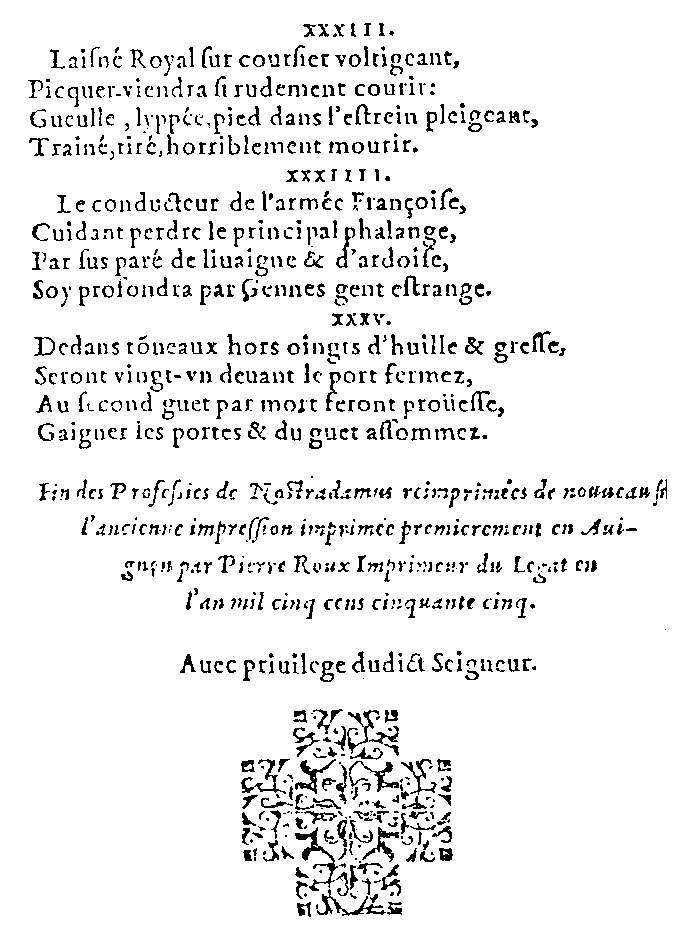 XXXIII.
Laiſné Royal ſur courſier voltigeant,
Picquer viendra ſi rudement courir:
Gueulle, lyppée, pied dans l'eſtrein pleigeant,
Trainé, tiré, horriblement mourir.
XXXIIII.
Le conducteur de l'armée Françoiſe,
Cuidant perdre le principal phalange,
Par ſus paué de liuaigne & d'ardoiſe,
Soy profondra par Gennes gent eſtrange.
XXXV.
Dedans tõneaux hors oingts d'huille & greſſe,
Seront vingt-vn deuant le port fermez,
Au ſecond guet par mort feront proüeſſe,
Gaigner les portes & du guet aſſommez.
Fin des Profeſsies de Noſtradamus reimprimées de nouueau ſu
l'ancienne impreſſion imprimée premierement en Aui-
gnon par Pierre Roux Imprimeur du Legat en
l'an mil cinq cens cinquante cinq.
Auec priuilege dudict Seigneur.